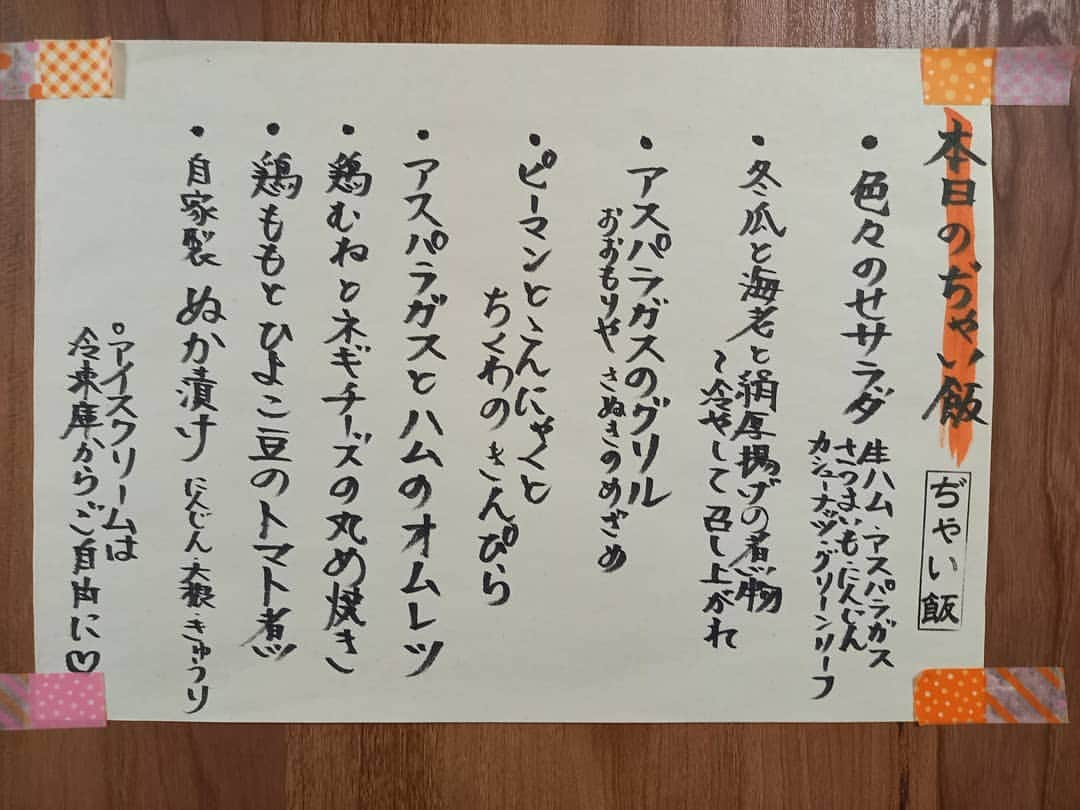 本日のぢゃい飯
ぢゃい飯
・色々のせサラダ
生ハム・アスパラガス
さつまいも・にんじん
カシューナッツ・グリーンリーフ
・冬瓜と海老と絹厚揚げの煮物
〜冷やして召し上がれ
・アスパラガスのグリル
おおもりや さぬきのめざめ
・ピーマンとこんにゃくと
ちくわのきんぴら
・アスパラガスとハムのオムレツ
・鶏むねとネギチーズの丸め焼き
・鶏ももとひよこ豆のトマト煮
・自家製 ぬか漬け にんじん・大根・きゅうり
○アイスクリームは
冷凍庫からご自由に♡